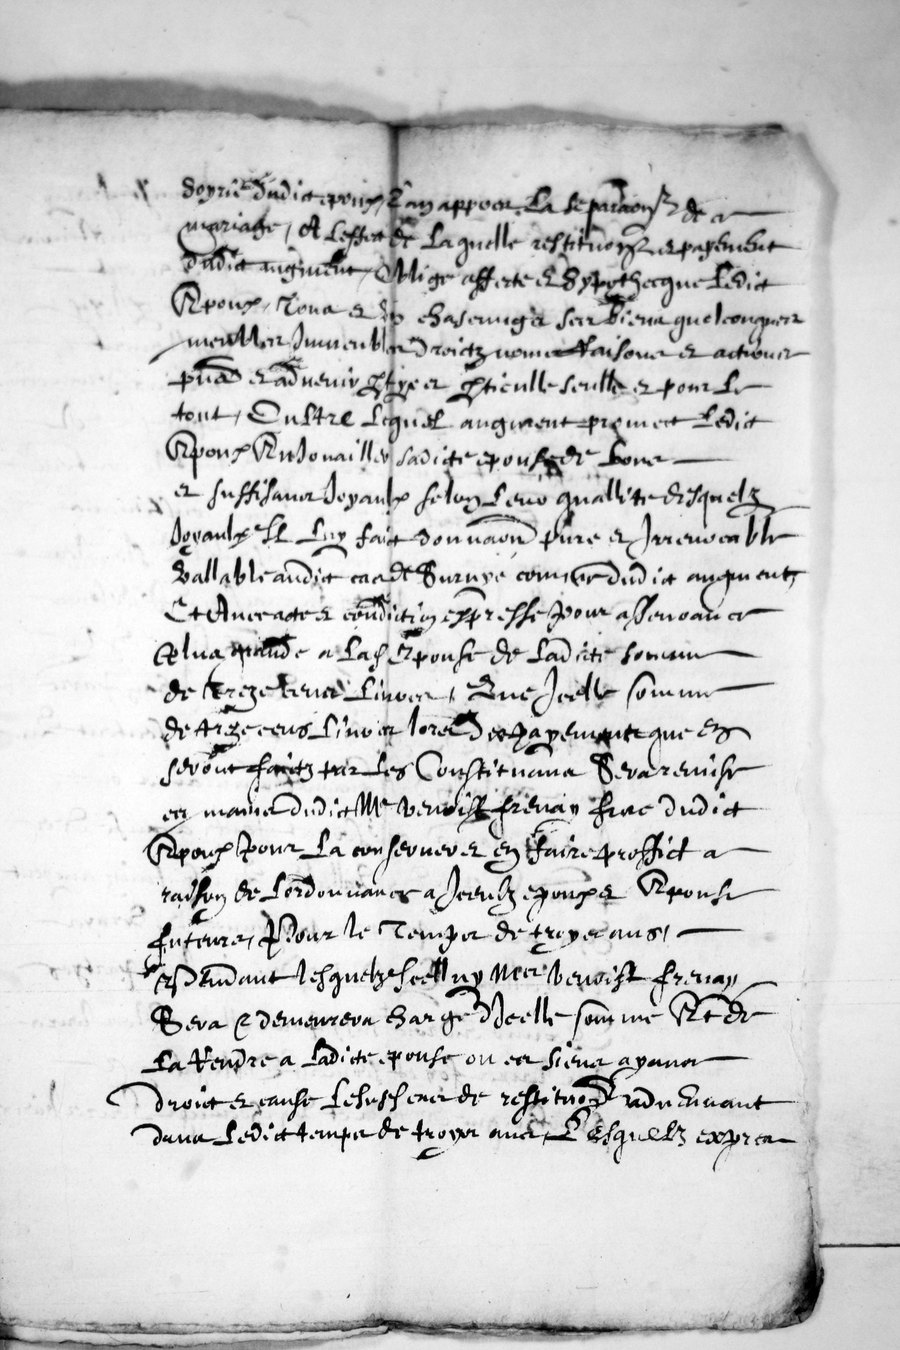 dudict epoux Lan appres La separaon de ce
mariage, A Leffect de Laquelle restituon et payement
dudict augment, Oblige affecte et Hypothecque Ledict
Epoux, Tous et Un chascungs ses biens quelconques
meubles Immeubles Droictz noms Raisons et actions
pntz et advenir seulle et pour Le
tout, Oultre Lequel augment promect Ledict
Epoux Enjouailler sadicte epouse de bons
et suffisans Joyaulx selon Leur quallite desquelz
Joyaulx Il Luy faict donnaon pure et Irrevocable
Vallable audict cas de Survye comme dudict augment,
Et Avec acte et condition expresse pour asseurance
Plus grande a Lad Epouse de Ladicte somme
de treze cens Livres, Que Icelle somme
de treze cens Livres lors des payements que en
seront faictz par Les Constituans Sera remise
es mains dudict Me benoist frenay frere dudict
Epoux Pour La conserver et en faire proffict a
raison de Lordonnance a Iceulx epoux et Epouse
futeurs, Pour le Temps de troys ans,
Pendant lesquelz Icelluy Mre benoist frenay
Sera et demeurera charge d'Icelle somme Et de
La Rendre a Ladicte epouse ou es siens ayans
droict et cause Lescheance de restituon advenant
dans Ledict temps de troys ans, Lesquelz expires